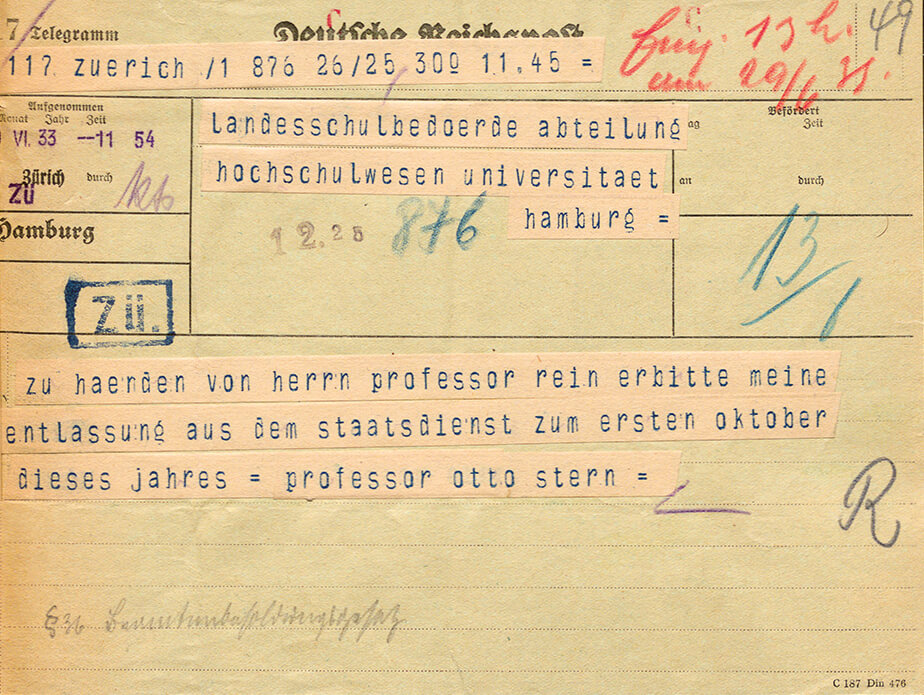 7 Telegramm Deutsche Reichspost
49
13 h.
am 29/6 31.
117 zuerich /1 876 26/25 300 11.45 =
Aufgenommen
Monat Jahr Zeit
VI. 33 --11 54
Zürich durch
ZÜ
Hamburg
Zü.
landesschulbedoerde abteilung
hochschulwesen universitaet
hamburg =
12.25 876
Befördert
ag Zeit
an durch
13/
zu haenden von herrn professor rein erbitte meine
entlassung aus dem staatsdienst zum ersten oktober
dieses jahres = professor otto stern =
R
§ 36 Beamtenbesoldungsgesetz
C 187 Din 476